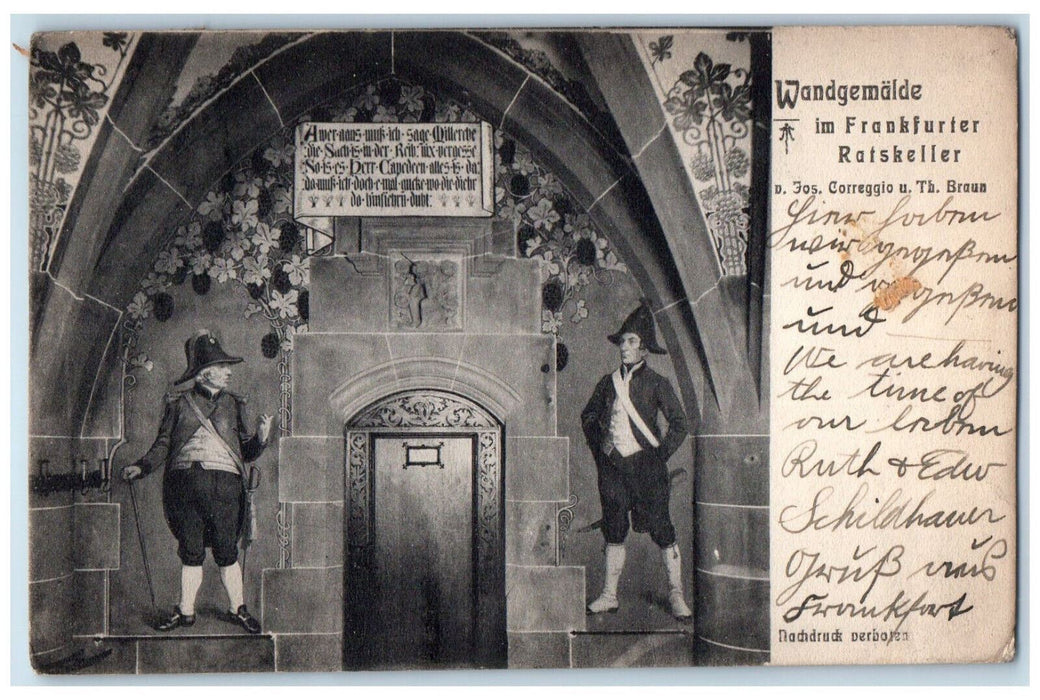 Awer aans muß ich sage Millerche
die Sach is in der Reih: nix vergesse
So is es Herr Capedeen alles is da:
do muß ich doch e mal gucke wo die diehr
do hinfiehrn duht:
Wandgemälde
im Frankfurter
Ratskeller
v. Jos. Correggio u. Th. Braun
Hier haben
wir gegeßen
und gegeßen
und
We are having
the time of
our leben
Ruth & Edw
Schildhauer
Gruß aus
Frankfort
Nachdruck verboten